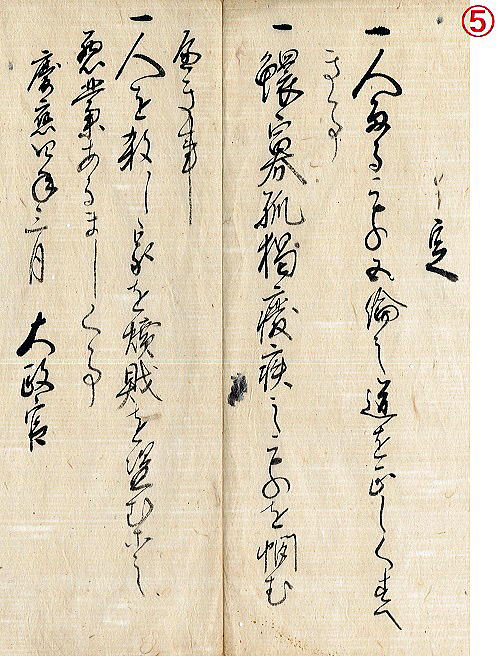 ⑤
定
一人たるもの五倫之道を正しくすへ
き事
一鰥寡孤独癈疾之ものを憫む
へき事
一人を殺し家を焼財を盗む等之
悪業あるましく事
慶應四年三月
太政官